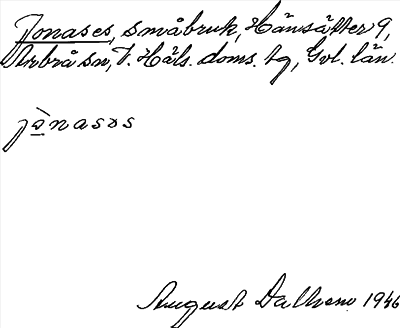 Jonases, småbruk, Hänsätter 9,
Arbrå sn, V. Häls. doms. tg, Gvl. län.
jònasəs
August Dalhem 1946